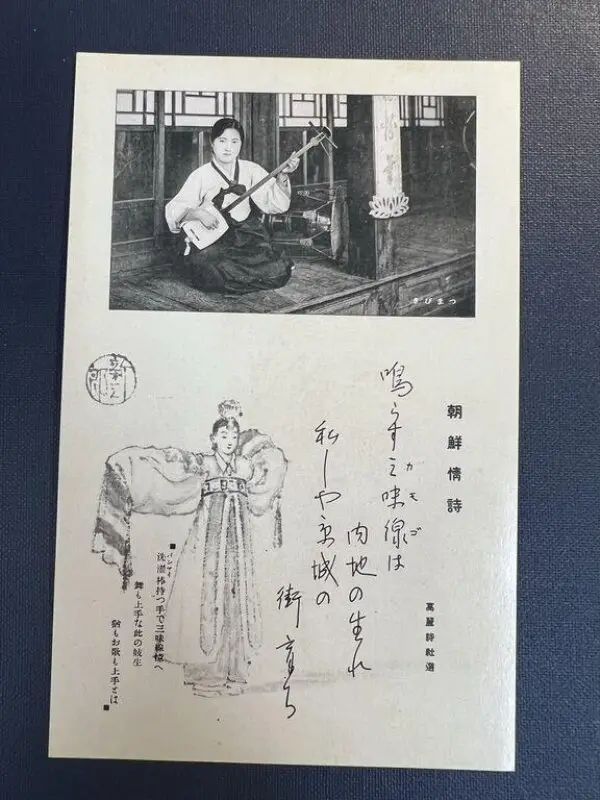 つまびき
朝鮮情詩
高麗詩社選
鳴らす三味線は
内地の生れ
私しや京城の
街育ち
■洗濯棒持つ手で三味線憶へ
舞も上手な此の妓生
もお歌も上手とは■